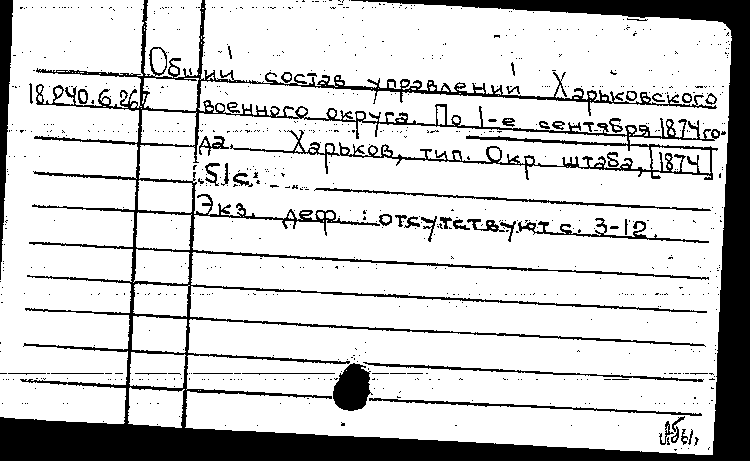 Общий состав управлений Харьковского
18.240.6.267 военного округа. По 1-е сентября 1874 го-
да. Харьков, тип. Окр. штаба, [1874]
51с.
Экз. деф. : отсутствуют с. 3-12.